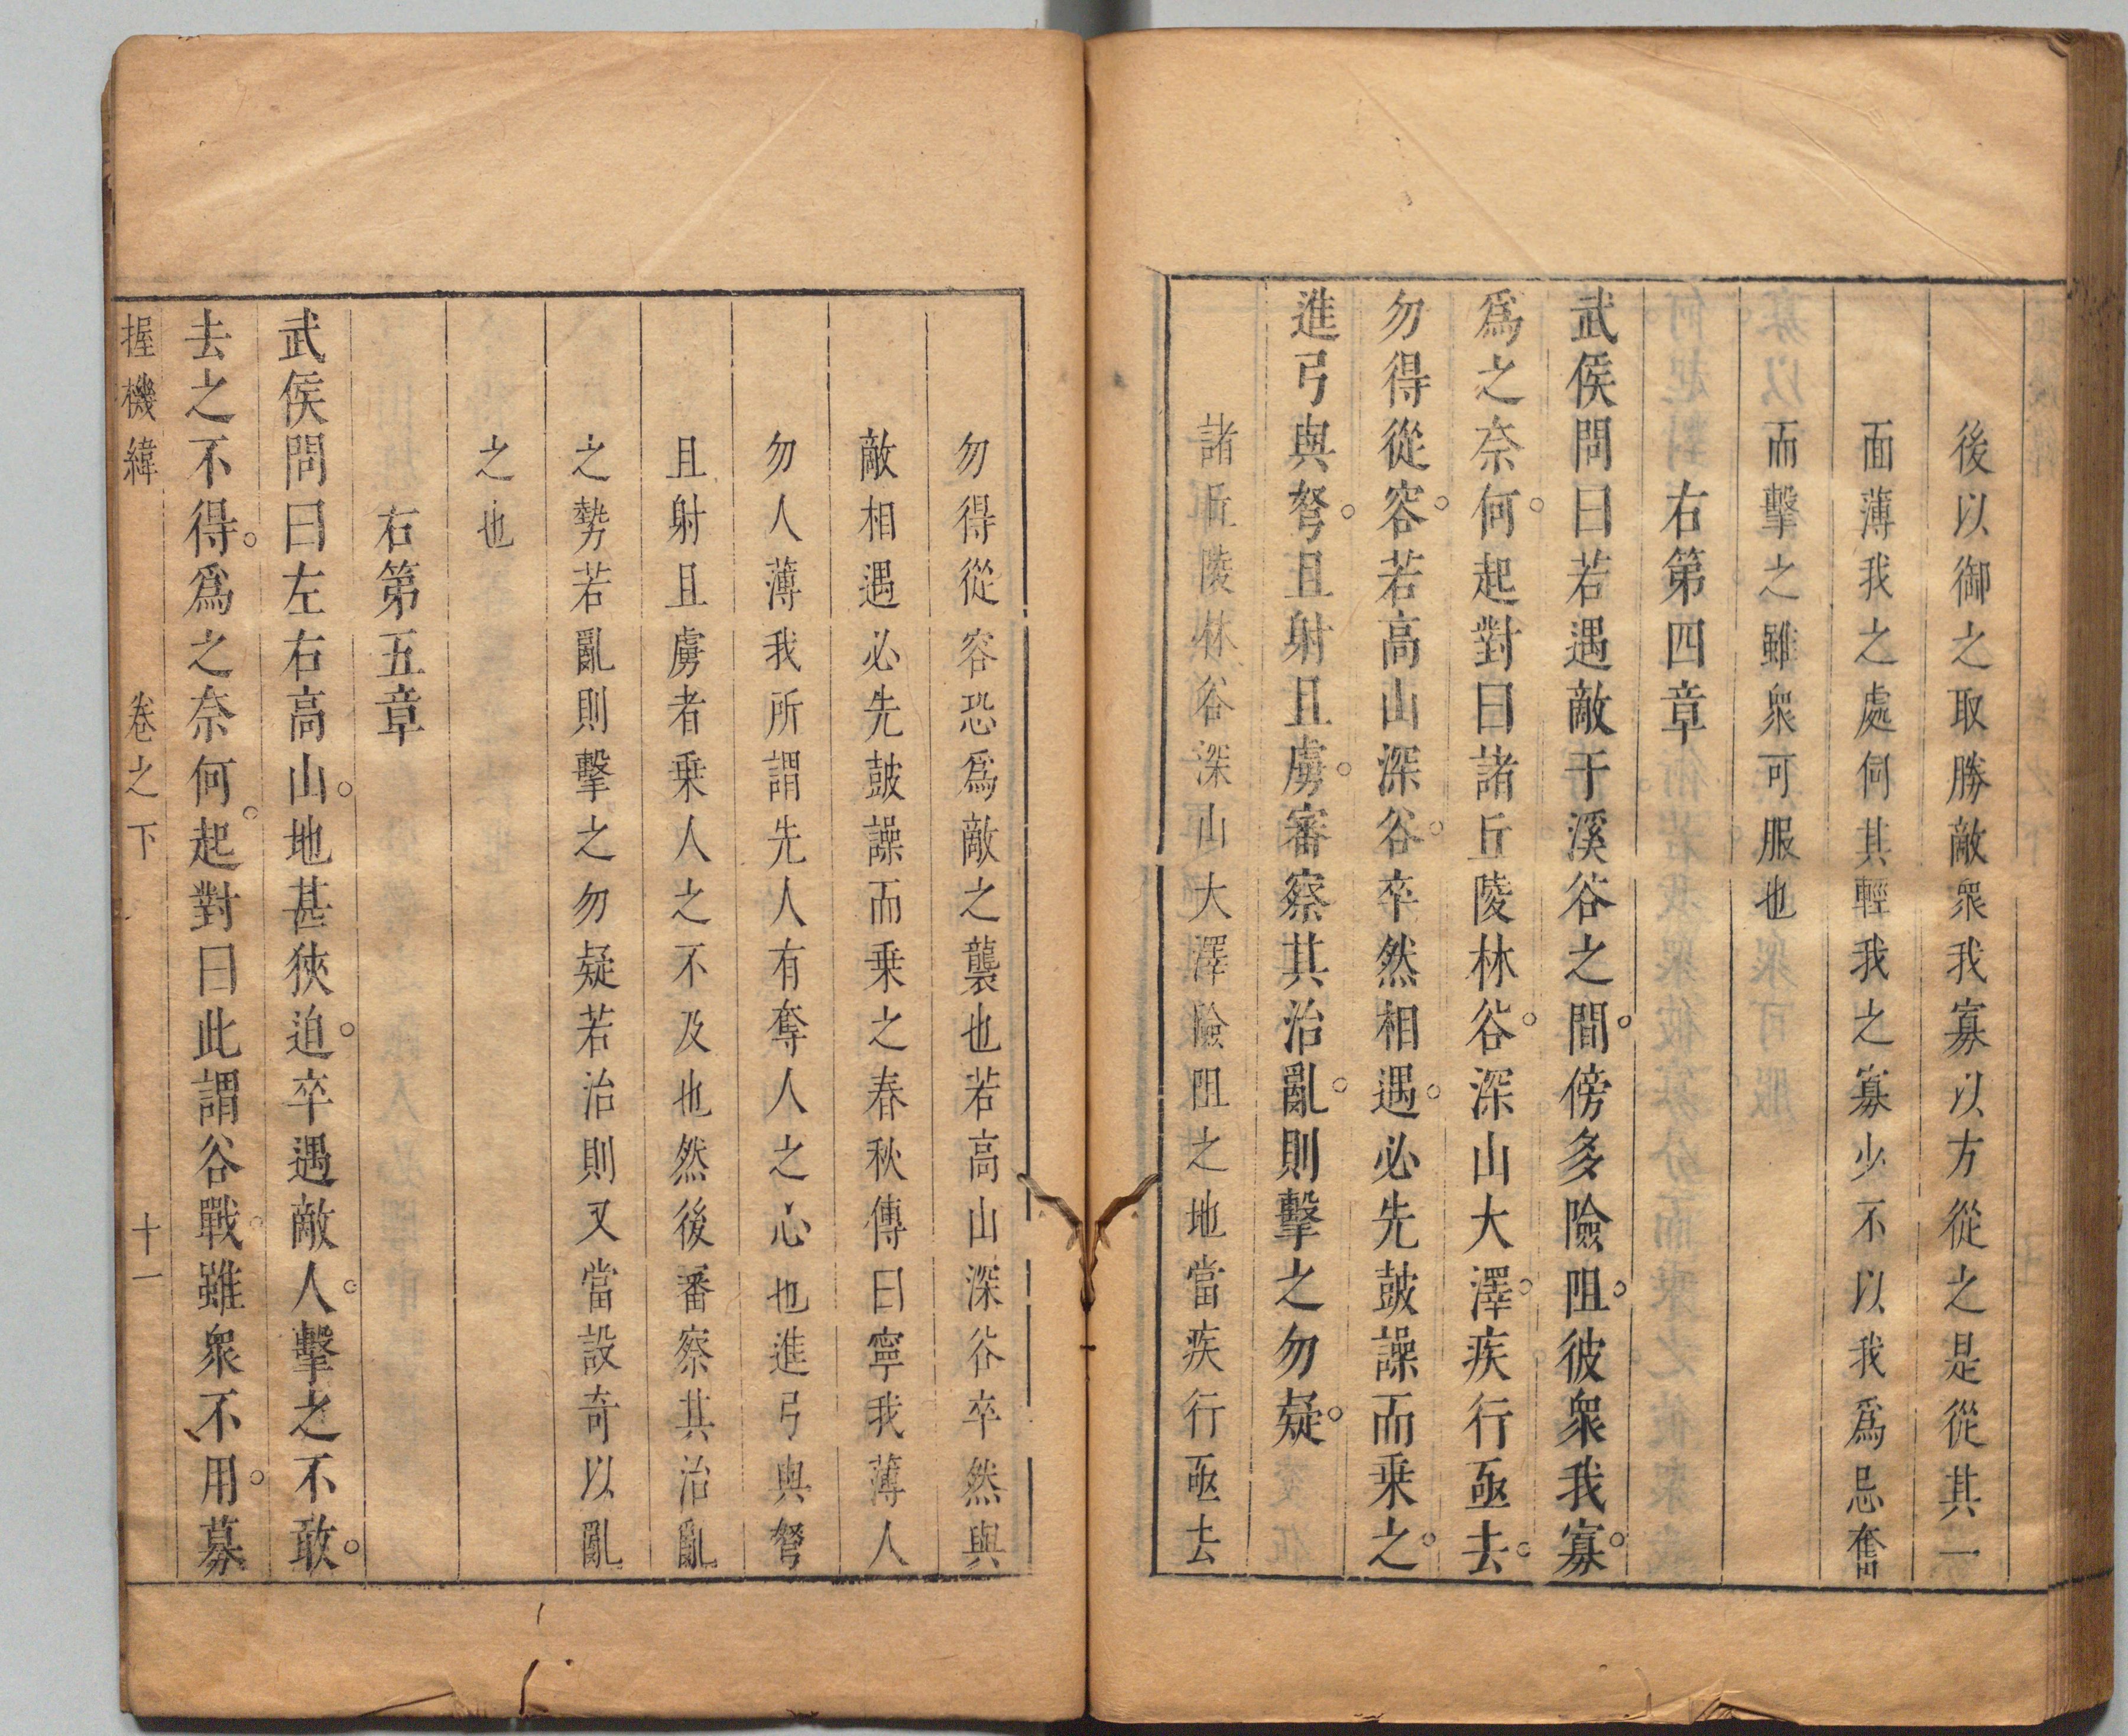 後以御之取勝敵衆我寡以方從之是從其一
面薄我之處伺其輕我之寡少不以我爲忌奮
而擊之雖衆可服也
右第四章
武侯問曰若遇敵于溪谷之間傍多險阻彼衆我寡
爲之奈何起對曰諸丘陵林谷深山大澤疾行亟去
勿得從容若高山深谷卒然相遇必先鼓譟而乗之
進弓與弩且射且虜審察其治亂則擊之勿疑
諸丘陵林谷深山大澤險阻之地當疾行亟去
勿得從容恐爲敵之襲也若高山深谷卒然與
敵相遇必先鼓譟而乗之春秋傳曰寧我薄人
勿人薄我所謂先人有奪人之心也進弓與弩
且射且虜者乗人之不及也然後審察其治亂
之勢若亂則擊之勿疑若治則又當設奇以亂
之也
右第五章
武侯問曰左右高山地甚狹迫卒遇敵人擊之不敢
去之不得爲之奈何起對曰此謂谷戰雖衆不用募
握機緯 卷之下 十一